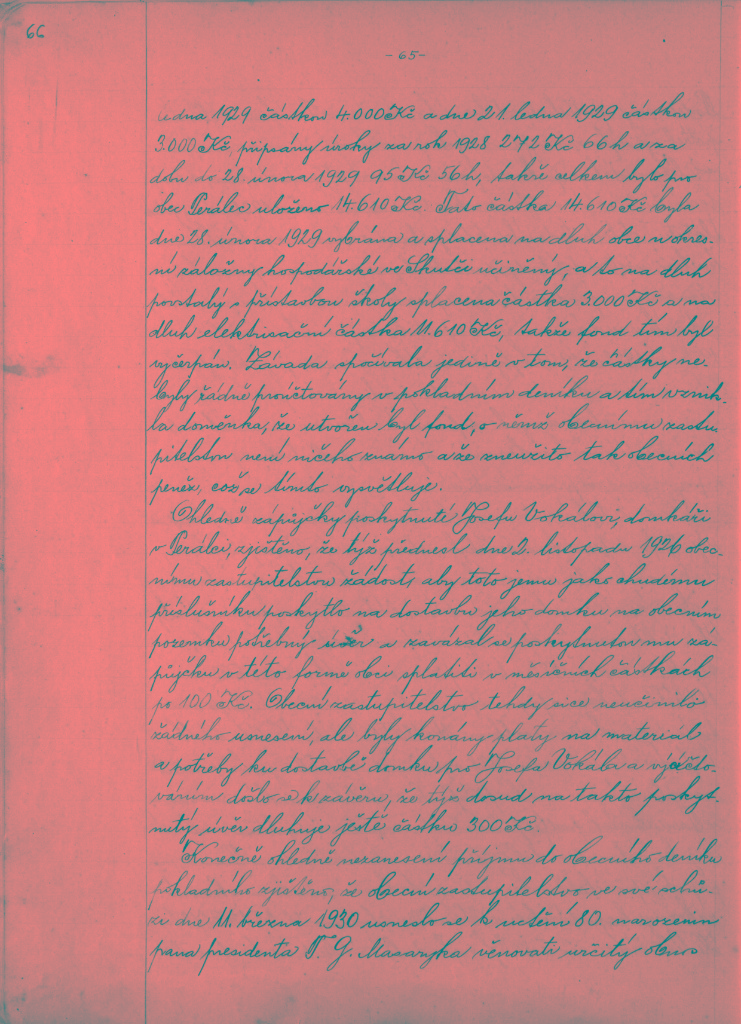 66
- 65 -
ledna 1929 částkou 4.000 Kč a dne 21. ledna 1929 částkou
3.000 Kč, připsány úroky za rok 1928 272 Kč 66 h a za
dobu do 28. února 1929 95 Kč 56 h, takže celkem bylo pro
obec Perálec uloženo 14.610 Kč. Tato částka 14.610 Kč byla
dne 28. února 1929 vybrána a splacena na dluh obce u okres-
ní záložny hospodářské ve Skutči učiněný, a to na dluh
povstalý s přístavbou školy splacena částka 3.000 Kč a na
dluh elektrisační částka 11.610 Kč, takže fond tím byl
vyčerpán. Závada spočívala jedině v tom, že částky ne-
byly řádně proúčtovány v pokladním deníku a tím vznik-
la doměnka, že utvořen byl fond, o němž obecnímu zastu
pitelstvu není ničeho známo a že zneužito tak obecních
peněz, což se tímto vysvětluje.
Ohledně zápůjčky poskytnuté Josefu Vokálovi, domkáři
v Perálci, zjištěno, že týž přednesl dne 2. listopadu 1926 obec-
nímu zastupitelstvu žádost, aby toto jemu jako chudému
příslušníku poskytlo na dostavbu jeho domku na obecním
pozemku potřebný úvěr a zavázal se poskytnutou mu zá-
půjčku v této formě obci splatiti v měsíčních částkách
po 100 Kč. Obecní zastupitelstvo tehdy sice neučinilo
žádného usnesení, ale byly konány platy na materiál
a potřeby ku dostavbě domku pro Josefa Vokála a vyúčto-
váním došlo se k závěru, že týž dosud na takto poskyt-
nutý úvěr dluhuje ještě částku 300 Kč.
Konečně ohledně nezanesení příjmu do obecního deníku
pokladního zjištěno, že obecní zastupitelstvo ve své schů-
zi dne 11. března 1930 usneslo se k uctění 80. narozenin
pana presidenta T. G. Masaryka věnovati určitý obnos